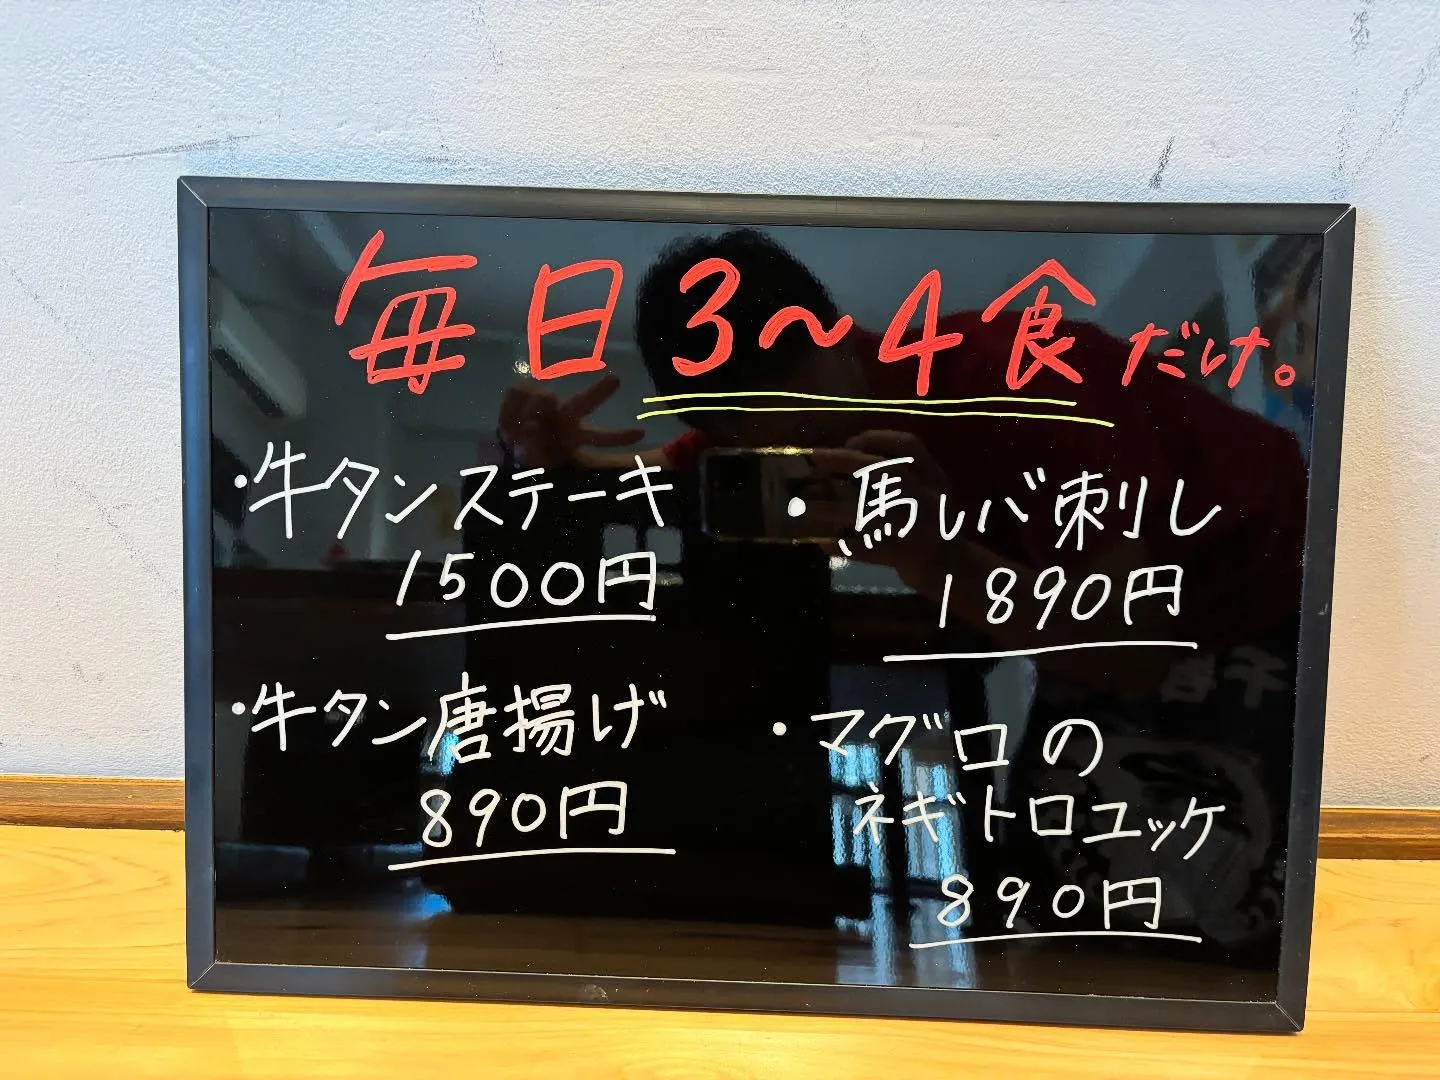 毎日3〜4食だけ。
・牛タンステーキ
1500円
・牛タン唐揚げ
890円
・馬レバ刺し
1890円
・マグロの
ネギトロユッケ
890円